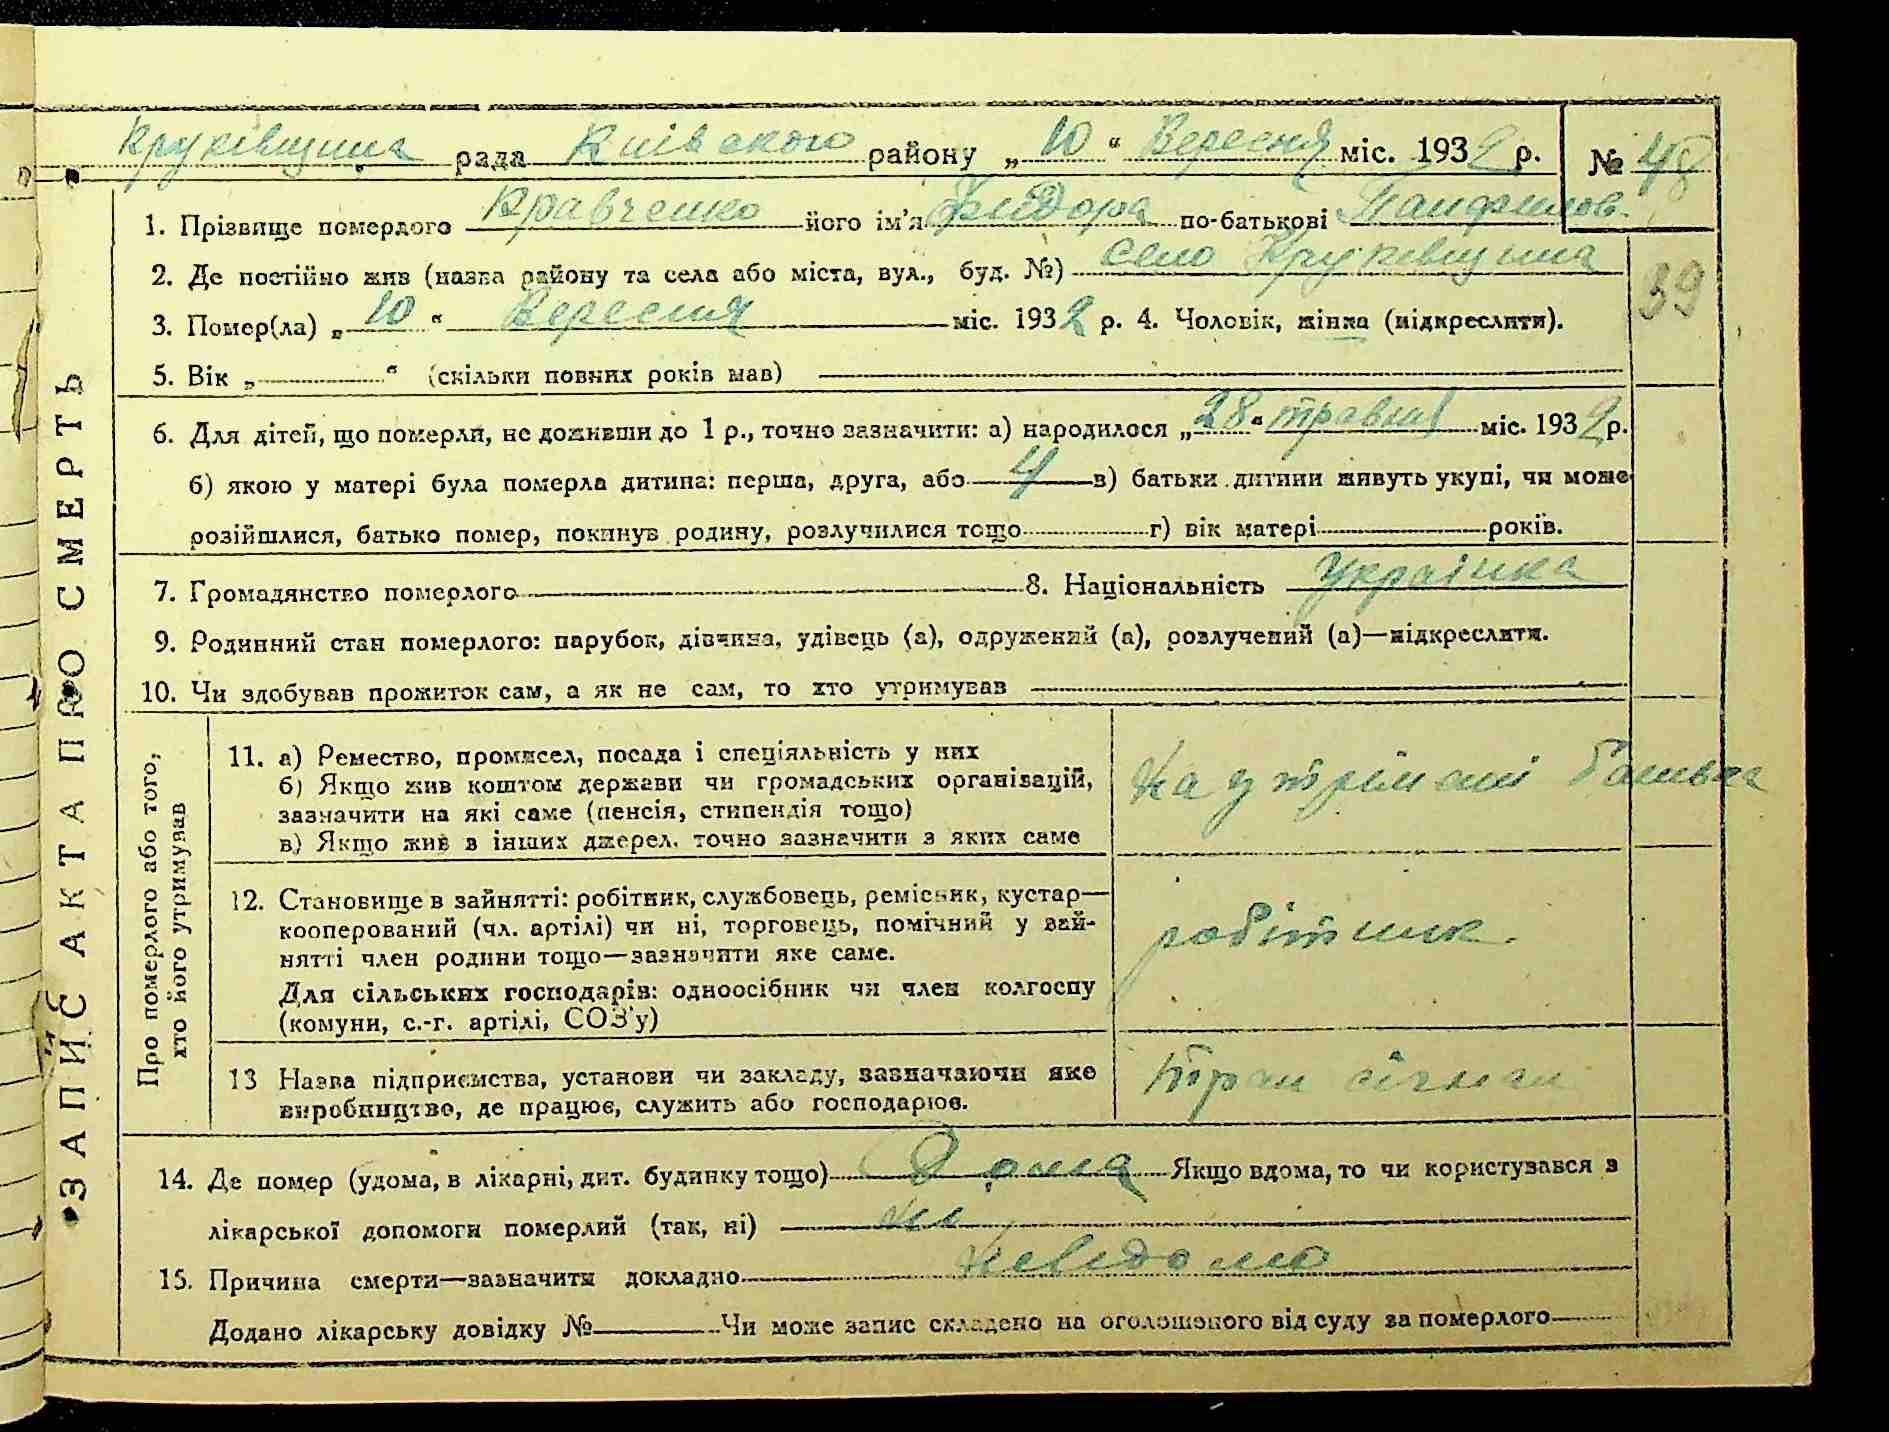 Круківщина рада Київського району „10“ Вересня міс. 1932 р. № 48
1. Прізвище померлого Кравченко його ім’я Хидора по-батькові Панфилов.
2. Де постійно жив (назва району та села або міста, вул., буд. №) село Круківщина
39
3. Помер(ла) „10“ Вересня міс. 1932 р. 4. Чоловік, жінка (підкреслити).
5. Вік „ “ (скільки повних років мав)
6. Для дітей, що померли, не доживши до 1 р., точно зазначити: а) народилося „28“ травня міс. 1932 р.
б) якою у матері була померла дитина: перша, друга, або 4 в) батьки дитини живуть укупі, чи може
розійшлися, батько помер, покинув родину, розлучилися тощо г) вік матері років.
7. Громадянство померлого 8. Національність Українка
9. Родинний стан померлого: парубок, дівчина, удівець (а), одружений (а), розлучений (а)—підкреслити.
10. Чи здобував прожиток сам, а як не сам, то хто утримував
ЗАПИС АКТА ПРО СМЕРТЬ
Про померлого або того,
хто його утримував
11. а) Ремество, промисел, посада і спеціяльність у них
б) Якщо жив коштом держави чи громадських організацій,
зазначити на які саме (пенсія, стипендія тощо)
в) Якщо жив з інших джерел, точно зазначити з яких саме
На утрімані батька
12. Становище в зайнятті: робітник, службовець, ремісник, кустар—
кооперований (чл. артілі) чи ні, торговець, помічний у зай-
нятті член родини тощо—зазначити яке саме.
Для сільських господарів: одноосібник чи член колгоспу
(комуни, с.-г. артілі, СОЗ’у)
робітник.
13 Назва підприємства, установи чи закладу, зазначаючи яке
виробництво, де працює, служить або господарює.
Тран сігнал
14. Де помер (удома, в лікарні, дит. будинку тощо) Дома Якщо вдома, то чи користувався з
лікарської допомоги померлий (так, ні) ні
15. Причина смерти—зазначити докладно Невідомо
Додано лікарську довідку № Чи може запис складено на оголошеного від суду за померлого